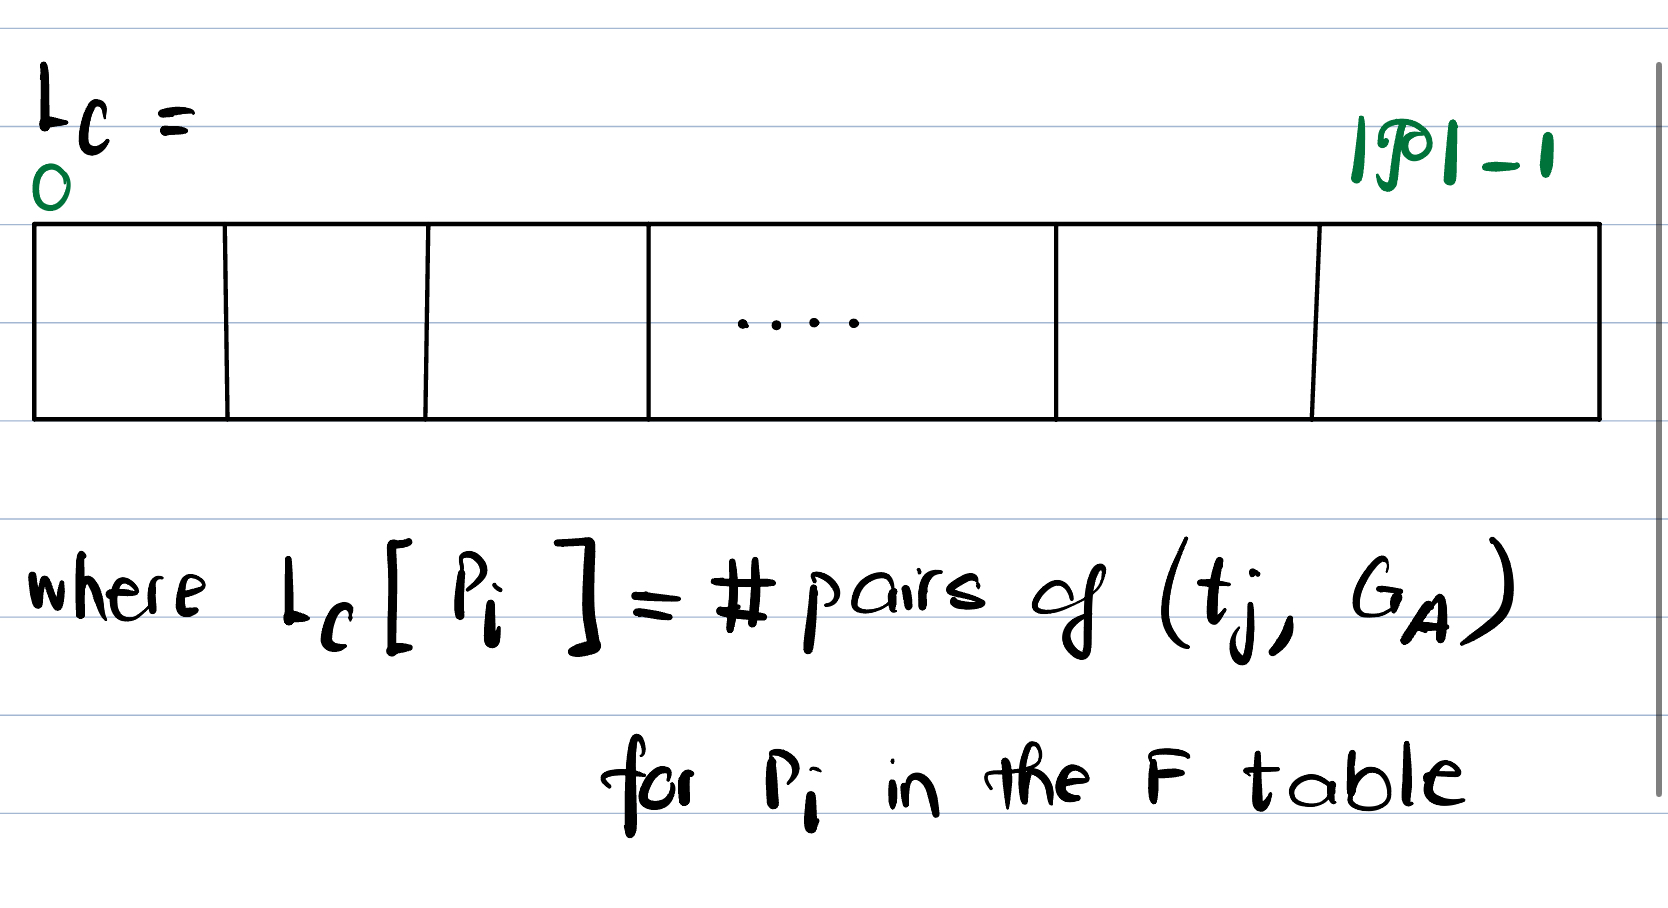 L_C =
0 |𝒫| - 1
....
where L_C [ P_i ] = # pairs of (t_j, G_A)
for P_i in the F table